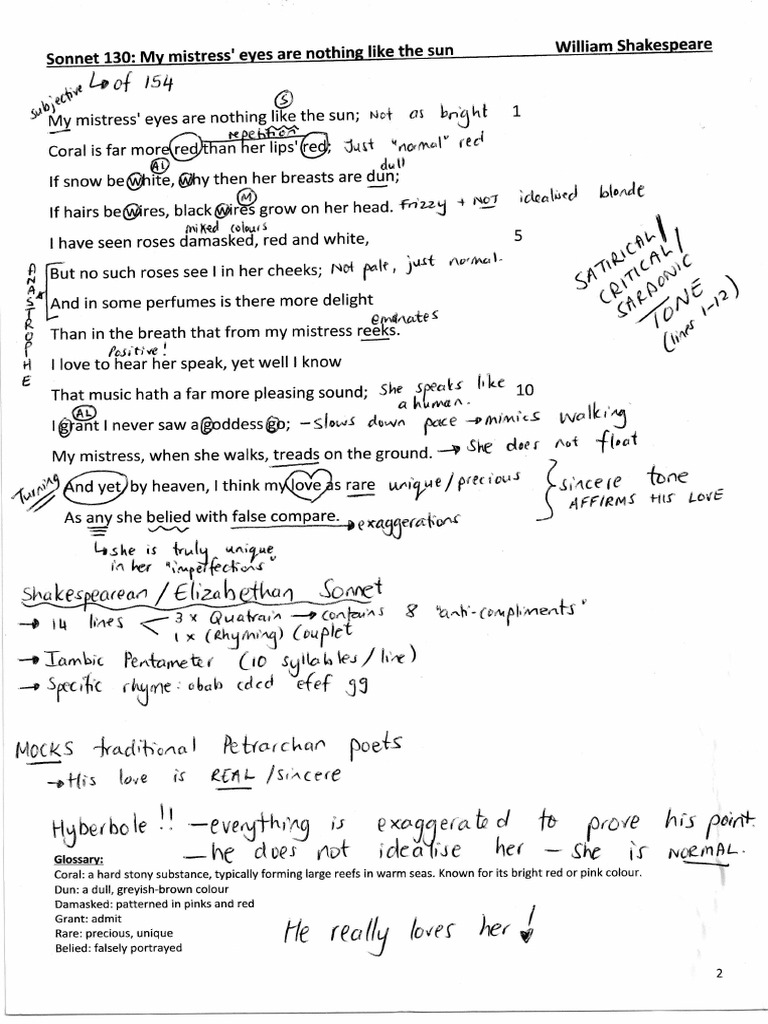 Sonnet 130: My mistress' eyes are nothing like the sun William Shakespeare
subjective ↳ of 154
My mistress' eyes are nothing like the sun; Not as bright 1
S
repetition
Coral is far more red than her lips' red; Just "normal" red
AL dull
If snow be white, why then her breasts are dun;
M
If hairs be wires, black wires grow on her head. Frizzy + NOT idealised blonde
mixed colours
I have seen roses damasked, red and white, 5
But no such roses see I in her cheeks; Not pale, just normal.
ANASTROPHE
And in some perfumes is there more delight
emanates
Than in the breath that from my mistress reeks.
Positive!
I love to hear her speak, yet well I know
That music hath a far more pleasing sound; She speaks like a human. 10
AL
I grant I never saw a goddess go; - slows down pace → mimics walking
My mistress, when she walks, treads on the ground. → She does not float
Turning And yet by heaven, I think my love as rare unique/precious
As any she belied with false compare. → exaggerations
sincere tone
AFFIRMS HIS LOVE
↳ she is truly unique
in her "imperfections"
SATIRICAL/
CRITICAL/
SARDONIC
TONE
(lines 1-12)
Shakespearean / Elizabethan Sonnet
→ 14 lines < 3 x Quatrain → contains 8 "anti-compliments"
1 x (Rhyming) Couplet
→ Iambic Pentameter (10 syllables/line)
→ Specific rhyme: abab cdcd efef gg
MOCKS traditional Petrarchan poets
→ His love is REAL / sincere
Hyberbole!! - everything is exaggerated to prove his point.
- he does not idealise her - she is NORMAL.
Glossary:
Coral: a hard stony substance, typically forming large reefs in warm seas. Known for its bright red or pink colour.
Dun: a dull, greyish-brown colour
Damasked: patterned in pinks and red
Grant: admit
Rare: precious, unique
Belied: falsely portrayed
He really loves her!
2